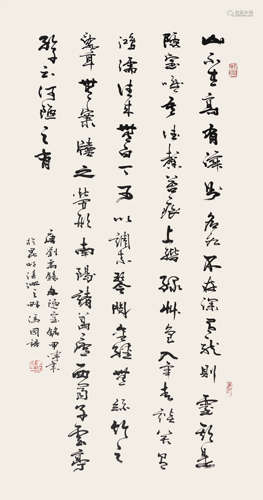 山不在高有僊則名水不在深有龙則靈斯是
陋室唯吾德馨苔痕上階綠艸色入帘青談笑有
鴻儒往来無白丁可以調素琴閱金經無絲竹之
亂耳無案牘之勞形南陽諸葛廬西蜀子雲亭
孔子云何陋之有
唐劉禹錫陋室銘甲申
於昆明滇池之畔馮國語